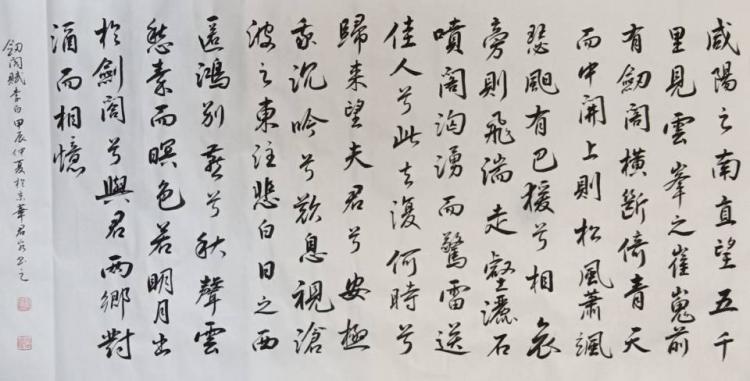 咸陽之南直望五千
里見雲峯之崔嵬前
有劒阁橫斷倚青天
而中開上則松風蕭颯
瑟颶有巴猨兮相哀
旁則飛湍走壑灑石
噴阁洶湧而驚雷送
佳人兮此去復何時兮
歸来望夫君兮安極
我沉吟兮歎息視滄
波之東注悲白日之西
匿鴻别燕兮秋聲雲
愁秦而暝色若明月出
於劍阁兮與君兩鄉對
酒而相憶
劒阁賦李白甲辰仲夏於京華君书之